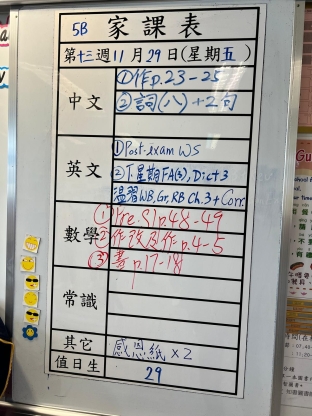 5B 家課表
第十三週 11月29日(星期五)
中文
①作p.23-25
②詞(八)+2句
英文
①Post-exam WS
②下星期FA(3), Dict 3
溫習WB, Gr, RB Ch.3 + Corr
數學
①Pre S1 p.48-49
②作改及作p.4-5
③書p.17-18
常識
其它
感恩紙×2
值日生
29